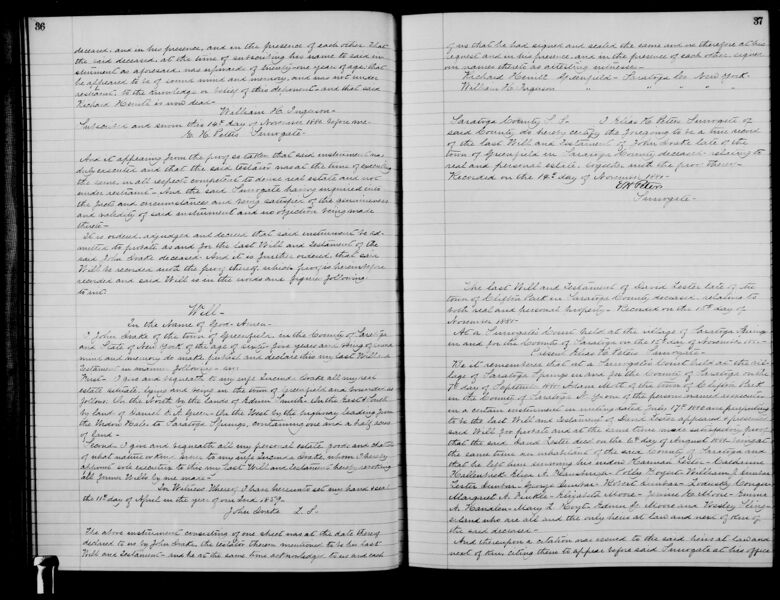 36
deceased, and in his presence, and in the presence of each other. That
the said deceased, at the time of subscribing his name to said in-
strument as aforesaid, was upwards of twenty-one years of age, that
he appeared to be of sound mind and memory, and was not under
restraint, to the knowledge or belief of this deponent and that said
Richard Hewitt is now dead.
William H. Ingerson.
Subscribed and sworn this 14th day of November 1880 before me.
E. H. Peters Surrogate
And it appearing from the proof so taken that said instrument was
duly executed and that the said testator was at the time of executing
the same in all respect competent to devise real estate and not
under restraint. And the said Surrogate having enquired into
the facts and circumstances and being satisfied of the genuineness
and validity of said instrument and no objection being made
thereto
It is ordered, adjudged and decreed that said instrument be ad-
mitted to probate as and for the last Will and Testament of the
said John Drake deceased. And it is further ordered, that said
Will be recorded with the proof thereof, which proof is hereinbefore
recorded and said Will is in the words and figures following
to wit:
Will-
In the Name of God-Amen-
I John Drake of the town of Greenfield, in the County of Saratoga
and State of New York of the age of sixty four years and being of sound
mind and memory do make publish and declare this my last Will and
Testament in manner following- viz:
First- I give and bequeath to my wife Lucinda Drake all my real
estate situate lying and being in the town of Greenfield and bounded as
follows: On the North by the lands of Edwin Smith. On the East & South
by land of Daniel A. Green. On the West by the highway leading from
the to Saratoga Springs, containing one and a half acres
of land-
Second- I give and bequeath all my personal estate, goods and chattels
of what nature or kind soever to my wife Lucinda Drake, whom I hereby
appoint sole executrix to this my last Will and Testament hereby revoking
all former Wills by me made-
In Witness Whereof, I have hereunto set my hand & seal
the 11th day of April in the year of our Lord 1859.
John Drake L. S.
The above instrument consisting of one sheet was at the date thereof
declared to us by John Drake, the testator therein mentioned to be his last
Will and Testament- and he at the same time acknowledged to us and each
37
of us that he had signed and sealed the same and we therefore at his
request and in his presence and in the presence of each other, signed
our names thereto as attesting witnesses-
Richard Hewitt Greenfield- Saratoga Co. New York-
William H. Ingerson " " " "
Saratoga County S. S. I Elias H. Peters Surrogate of
said County, do hereby certify the foregoing to be a true record
of the last Will and Testament of John Drake late of the
town of Greenfield in Saratoga County deceased relating to
real and personal estate, together with the proof thereof-
Recorded on the 14th day of November 1880-
E H Peters
Surrogate-
The Last Will and Testament of David Lester late of the
town of Clifton Park in Saratoga County deceased, relating to
both real and personal property- Recorded on the 15th day of
November 1880-
At a Surrogates Court held at the village of Saratoga Springs
in and for the County of Saratoga on the 15th day of November 1880-
Present Elias H. Peters Surrogate-
Be it remembered that at a Surrogates Court held at the vil-
lage of Saratoga Springs in and for the County of Saratoga on the
7th day of September 1880 Adam Mott of the town of Clifton Park
in the County of Saratoga N.Y. one of the persons named executors
in a certain instrument in writing dated July 17th 1880 purporting
to be the last Will and Testament of David Lester appeared & presented
said Will for probate and at the same time made satisfactory proof
that the said David Lester died on the 6th day of August 1880 being at
the same time an inhabitant of the said County of Saratoga and
that he left him surviving his widow Hannah Lester- Catharine
Hallenbeck Eliza A. Polly William J. Dunbar
Lester Dunbar- George Dunbar- Robert Dunbar-
Margaret A. Elizabeth Moore- Jennie H. Moore- Emma
A. Mary L. Hoyt- Edwin G. Moore and Wessley
land who are all and the only heirs at law and next of kin of
the said deceased-
And thereupon a citation was issued to the said heirs at law and
next of kin, citing them to appear before said Surrogate at his office